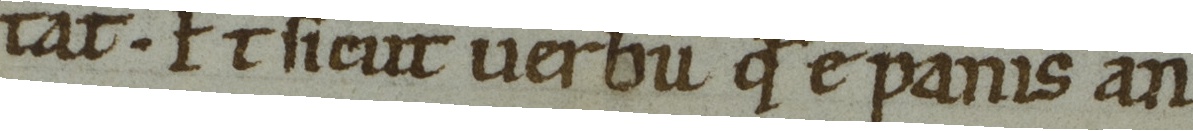 tat. Et sicut uerbu q̄ ē panis an